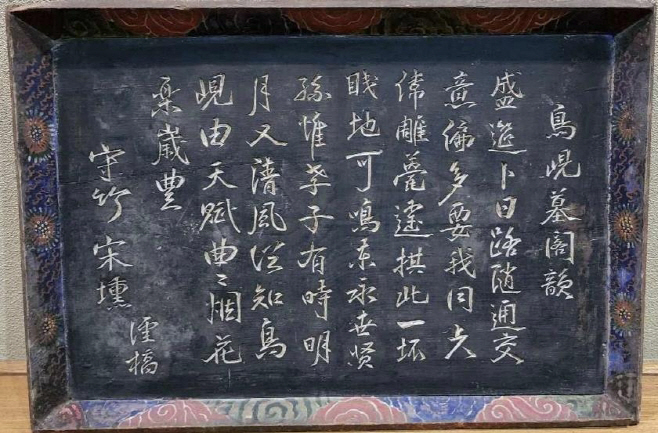 鳥峴墓閣韻
盛筵卜日路隨通交
意偏多要我同
偉雕甍拱此一坏
賤地可鳴東承世賢
孫惟孝子有時明
月又清風從知鳥
峴由天賦曲〻烟花
樂歲豊
守竹 宋壎
謹稿